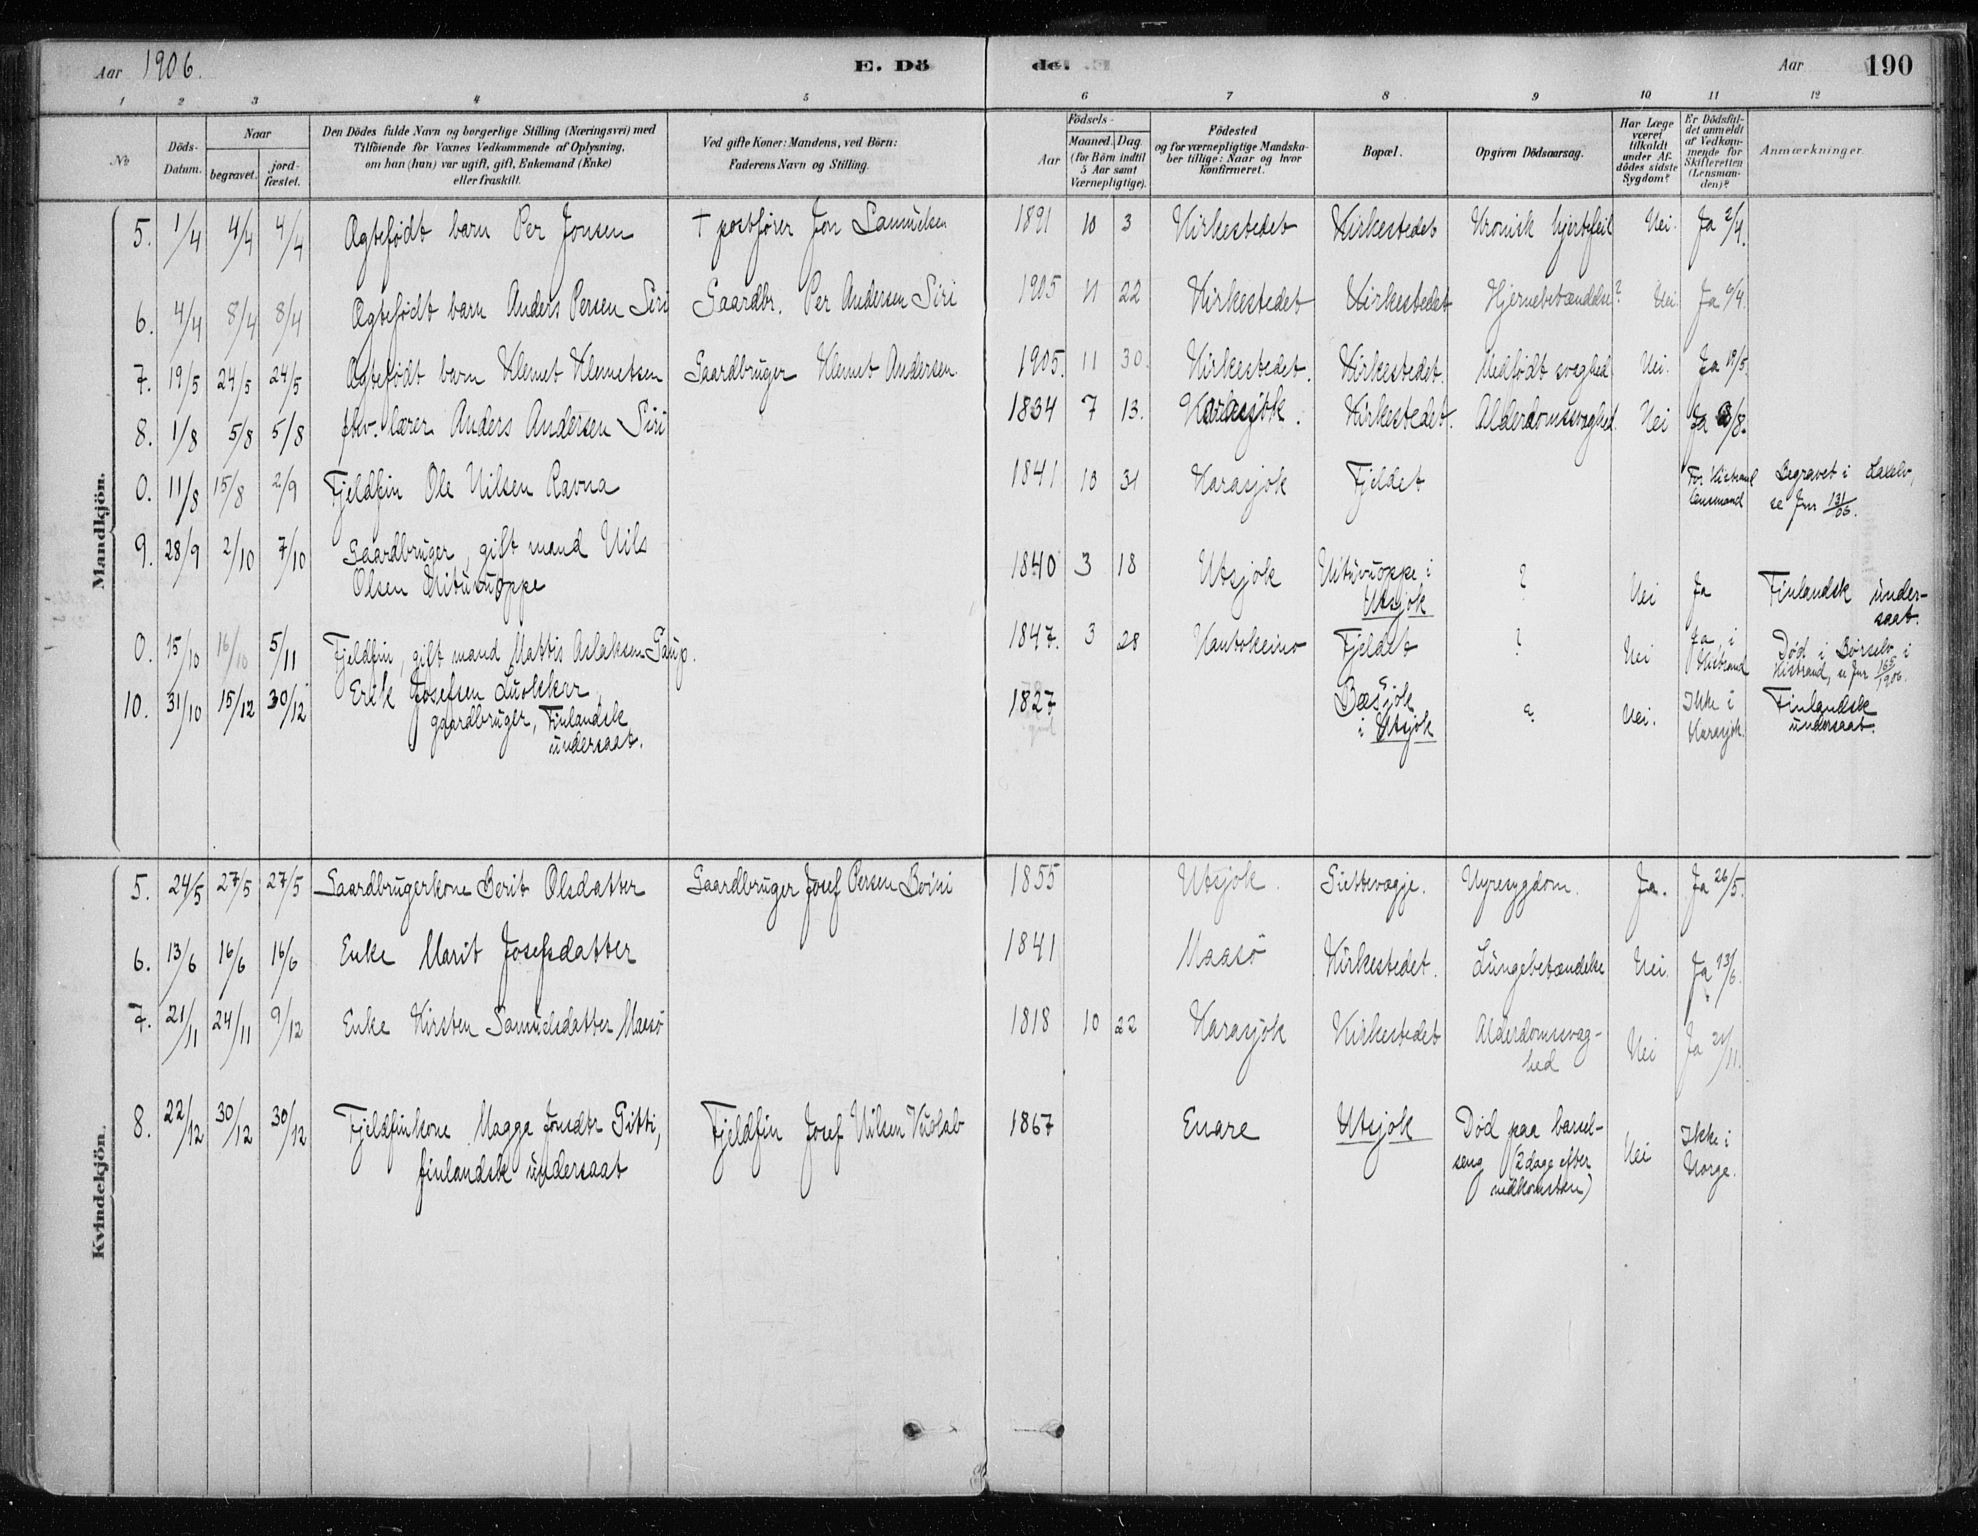 Aar 1906. E. Dö de. Aar 190
1 2 3 4 5 6 7 8 9 10 11 12
No
Döds-Datum.
Naar
begravet. jordfæstet.
Den Dödes fulde Navn og borgerlige Stilling (Næringsvei) med
Tilföiende for Voxnes Vedkommende af Oplysning,
om han (hun) var ugift, gift, Enkemand (Enke)
eller fraskilt.
Ved gifte Koner: Mandens, ved Börn:
Faderens Navn og Stilling.
Födsels-
Aar Maaned. Dag.
(for Börn indtil
5 Aar samt
Værnepligtige).
Födested
og for værnepligtige Mandska-
ber tillige: Naar og hvor
konfirmeret.
Bopæl.
Opgiven Dödsaarsag.
Har Læge
været
tilkaldt
under Af-
dödes sidste
Sygdom?
Er Dödsfal-
det anmeldt
af Vedkom-
mende for
Skifteretten
(Lensman-
den)?
Anmærkninger.
Mandkjön.
5. 1/4 4/4 4/4 Ægtefødt barn Per Jonsen † postfører Jon Samuelsen 1891 10 3 Kirkestedet Kirkestedet Kronisk hjertefeil Nei. Ja 2/4.
6. 4/4 8/4 8/4 Ægtefødt barn Anders Persen Siri Gaardbr. Per Andersen Siri 1905 11 22 Kirkestedet Kirkestedet Hjernebetændelse? Nei. Ja 6/4.
7. 19/5 24/5 24/5 Ægtefødt barn Klemet Klemetsen Gaardbruger Klemet Andersen 1905. 11 30. Kirkestedet. Kirkestedet. Medfødt svaghed Nei. Ja 19/5.
8. 1/8 5/8 5/8 fhv. lærer Anders Andersen Siri 1834 7 13. Karasjok. Kirkestedet. Alderdomssvaghed. Nei Ja /8.
0. 11/8 15/8 2/9 Fjeldfin Ole Nilsen Ravna 1841 10 31 Karasjok Fjeldet For Kistrand
lensmand Begravet i Lakselv,
se Jnr 131/06.
9. 28/9 2/10 7/10 Gaardbruger, gift mand Nils
Olsen Nituvuoppe 1840 3 18 Utsjok Nituvuoppe i
Utsjok ? Nei Ja Finlandsk under-
saat.
0. 15/10 16/10 5/11 Fjeldfin, gift mand Mattis Aslaksen Gaup. 1847. 3 28 Kautokeino Fjeldet ? Nei Ja, i
Kistrand Død i Børselv i
Kistrand, se Jnr 165/1906.
10. 31/10 15/12 30/12 Erik Josefsen Luokkar,
gaardbruger, Finlandsk
undersaat. 1827 Bæsjok
i Utsjok ? Nei. Ikke i
Karasjok. Finlandsk
undersaat.
Kvindekjön.
5. 24/5 27/5 27/5 Gaardbrugerkone Berit Olsdatter Gaardbruger Josef Persen Boini 1855 Utsjok. Siettevagje. Nyresygdom. Ja. Ja 26/5.
6. 13/6 16/6 16/6 Enke Marit Josefsdatter 1841 Maasø Kirkestedet. Lungebetændelse Nei. Ja 13/6.
7. 21/11 24/11 9/12 Enke Kirsten Samuelsdatter Maasø 1818 10 22 Karasjok Kirkestedet Alderdomssvag-
hed Nei Ja 21/11.
8. 22/12 30/12 30/12 Fjeldfinkone Magga Jonsdtr Gitti,
finlandsk undersaat Fjeldfin Josef Nilsen Kuolab 1867 Enare Utsjok Død paa barsel-
seng (2 dage efter
nedkomsten) Nei Ikke i
Norge.